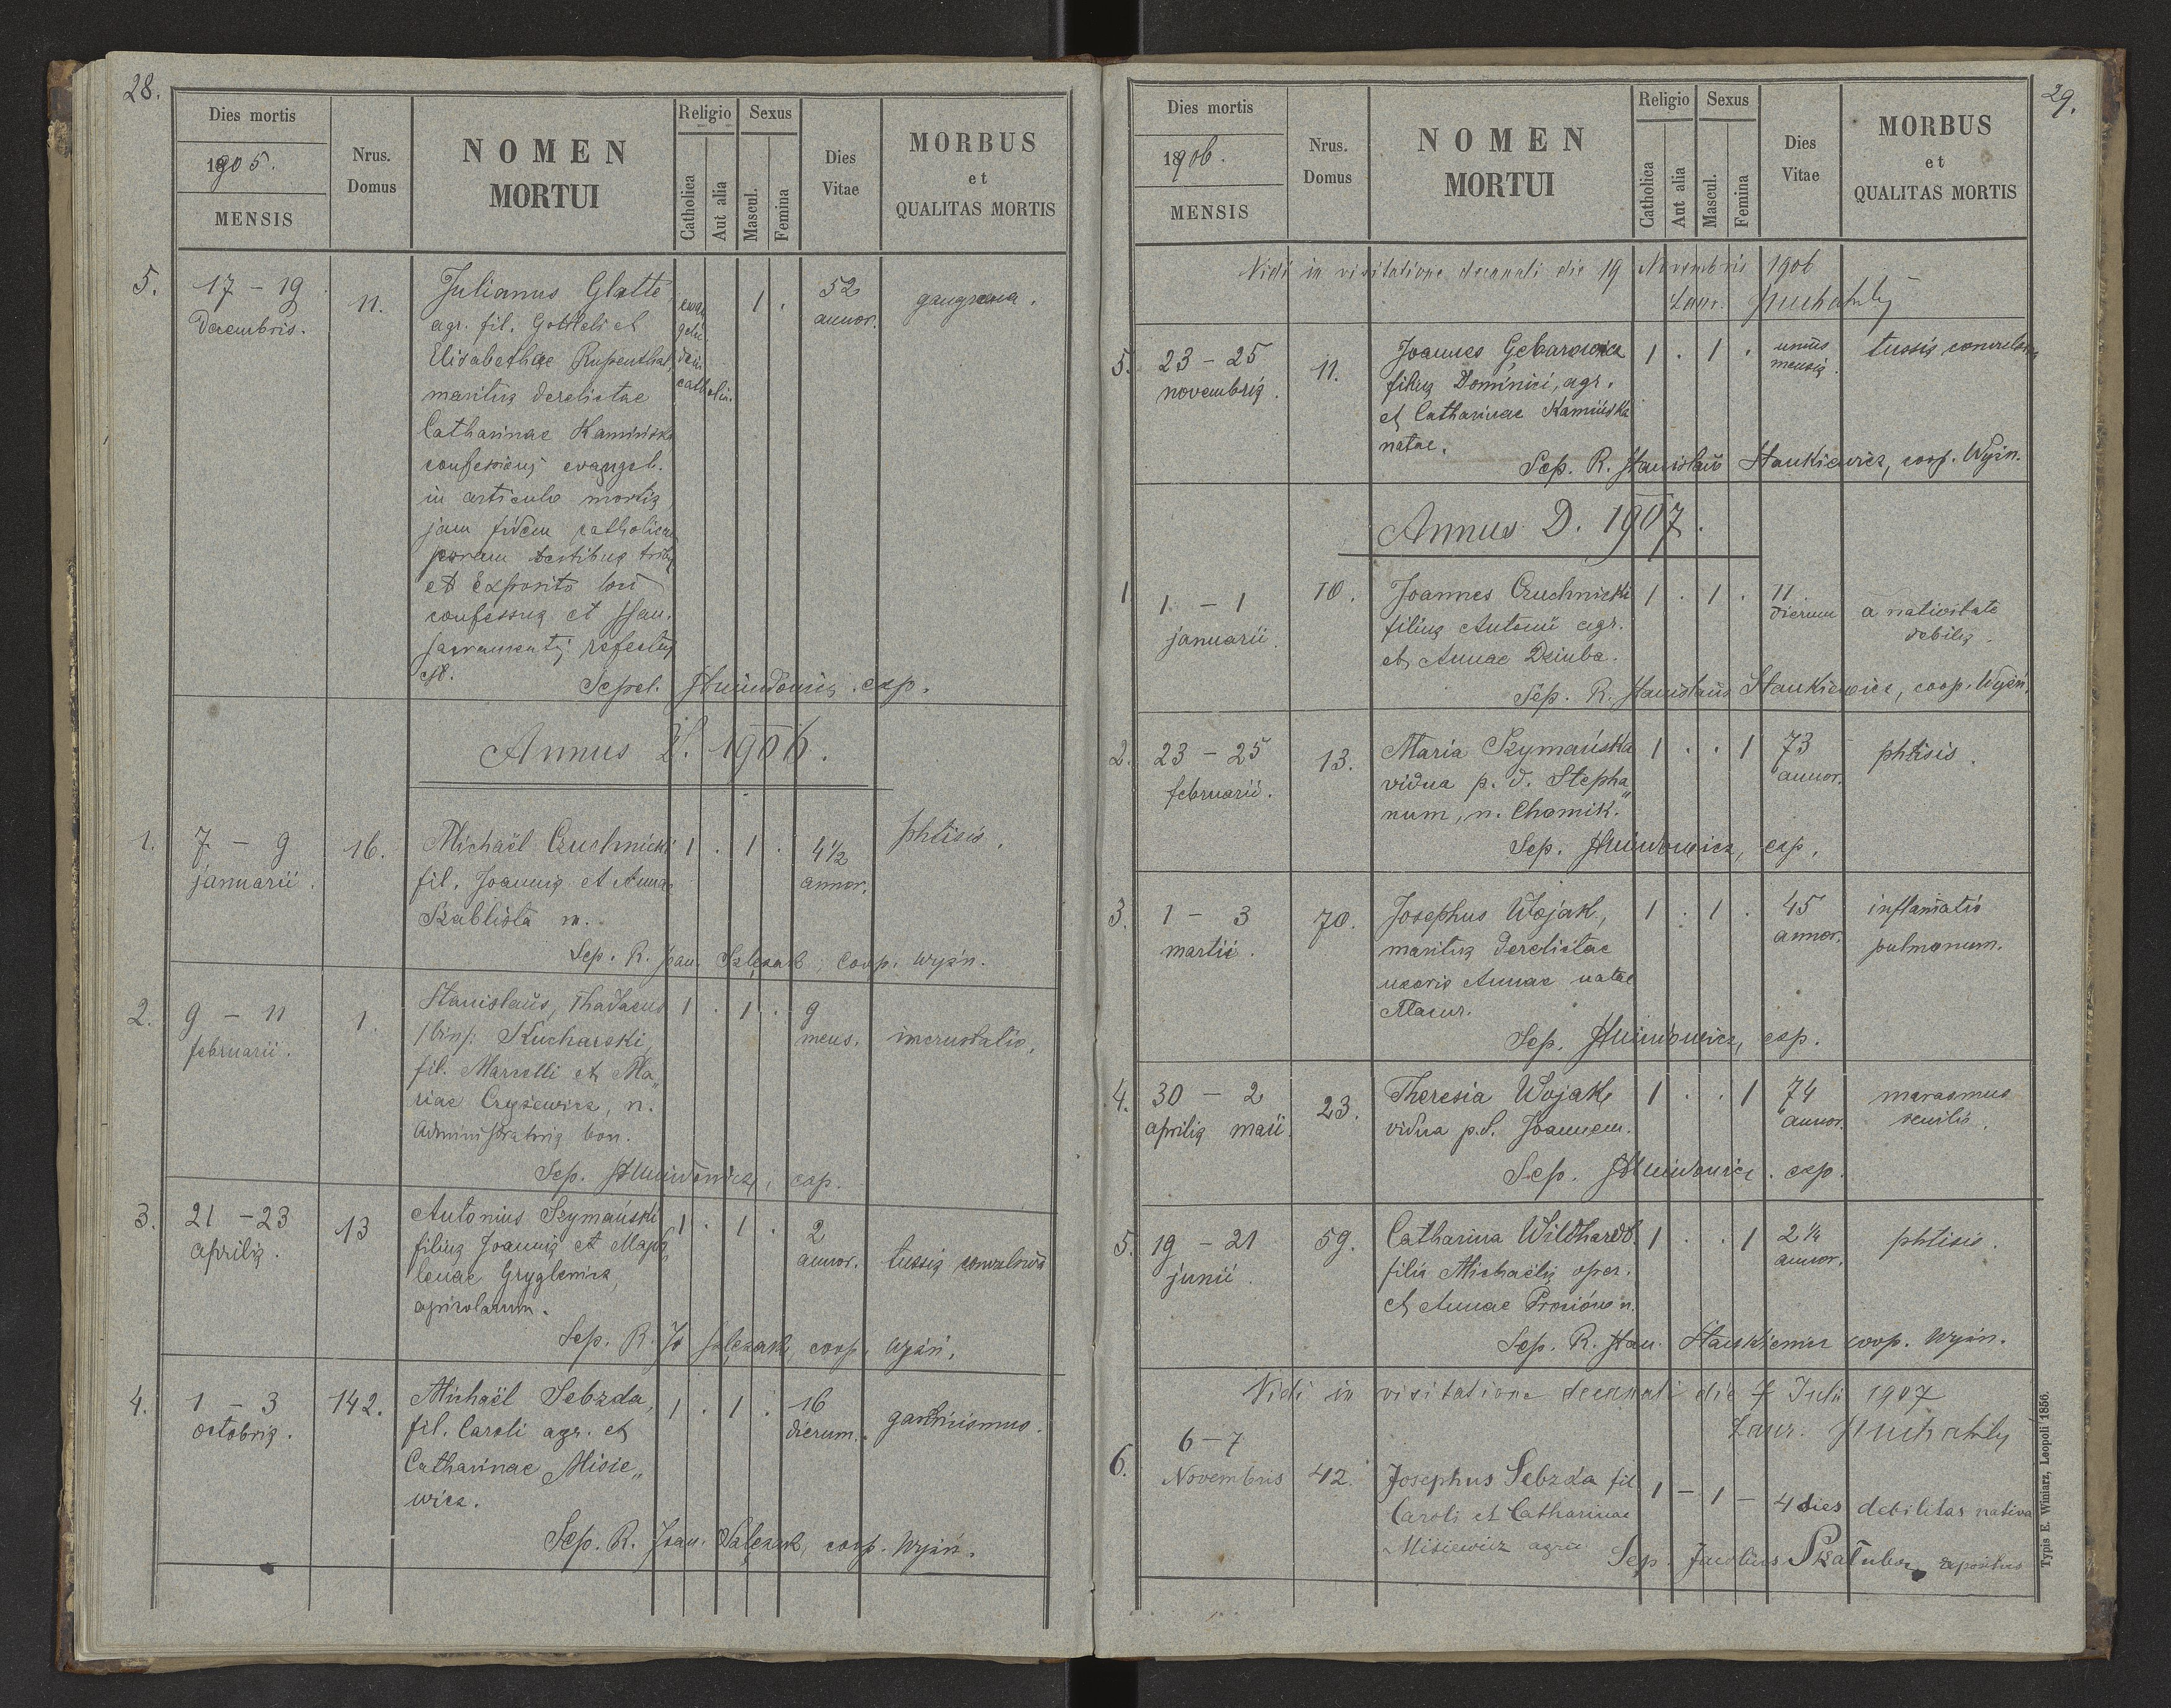 28.
Dies mortis
1905.
MENSIS
Nrus. Domus
NOMEN MORTUI
Religio
Catholica
Aut alia
Sexus
Mascul.
Femina
Dies Vitae
MORBUS
et
QUALITAS MORTIS
5.
17 - 19
Decembris.
11.
Julianus Glatte
agr. fil. Gottlebi et
Elisabethae Rupenthal,
maritus derelictae
Catharinae Kamińska
confessionis evangel.
in articulo mortis
jam fidem catholicam
coram testibus tribus
et Exposito loci
confessus et
sacramentis refectus
est.
evan
geli
dein
catholic.
1 .
52
annor.
gangraena.
Sepel. exp.
Annus D. 1906.
1.
7 - 9
januarii.
16.
Michaël Czuchnicki
fil. Joannis et Annae
Szablista n.
1 . 1 .
4 1/2
annor.
phtisis.
Sep. R. Joan. Szlęzak, coop. Wyżn.
2.
9 - 11
februarii.
1.
Stanislaus, Thadaeus
/bin/: Kucharski,
fil. Marcelli et Ma„
riae Czyżewicz, n.
Administratoris bon.
1 . 1 .
9
mens.
incrustatio.
Sep. exp.
3.
21 - 23
aprilis.
13
Antonius Szymański
filius Joannis et Magda
lenae Gryglewicz,
agricolarum.
1 . 1 .
2
annor.
tussis convulsiva
Sep. R. Jo Szlęzak, coop. Wyżn.
4.
1 - 3
octobris.
142.
Michaël Sebzda,
fil. Caroli agr. et
Catharinae Misie„
wicz.
1 . 1 .
16
dierum.
gastricismus.
Sep. R. Joan. Szlęzak, coop. Wyżn.
29.
Dies mortis
1906.
MENSIS
Nrus. Domus
NOMEN MORTUI
Religio
Catholica
Aut alia
Sexus
Mascul.
Femina
Dies Vitae
MORBUS
et
QUALITAS MORTIS
Vidi in visitatione decanali die 19 Novembris 1906
Laur. Puchalsky
5.
23 - 25
novembris.
11.
Joannes Gębarowicz
filius Dominici, agr.
et Catharinae Kamińska
natae.
1 . 1 .
unius
mensis.
tussis convulsiva
Sep. R. Stanislaus Stankiewicz, coop. Wyżn.
Annus D. 1907.
1
1 - 1
januarii.
10.
Joannes Czuchnicki
filius Antonii agr.
et Annae Dziuba.
1 . 1 .
11
dierum
a nativitate
debilis.
Sep. R. Stanislaus Stankiewicz, coop. Wyżn.
2.
23 - 25
februarii.
13.
Maria Szymańska
vidua p. d. Stepha„
num, n. Chomik.
1 . . 1
73
annor.
phtisis.
Sep. exp.
3.
1 - 3
martii.
70.
Josephus Wojak,
maritus derelictae
uxoris Annae natae
Mazur.
1 . 1 .
45
annor.
inflamatio
pulmonum.
Sep. exp.
4.
30 - 2
aprilis maii.
23.
Theresia Wojak,
vidua p. d. Joannem.
1 . . 1
74
annor.
marasmus
senilis.
Sep. exp.
5.
19 - 21
junii.
59.
Catharina Wildhardt.
filia Michaëlis oper.
et Annae n.
1 . . 1
2 1/4
annor.
phtisis.
Sep. R. Stan. Stankiewicz coop. Wyżn.
Vidi in visitatione decanali die 7 Julii 1907
Laur. Puchalsky
6.
6 - 7
Novembris
42.
Josephus Sebzda fil.
Caroli et Catharinae
Misiewicz agric
1 - 1 -
4 dies
debilitas nativa
Sep. Jacobus expositus
Typis E. Winiarz, Leopoli 1856.